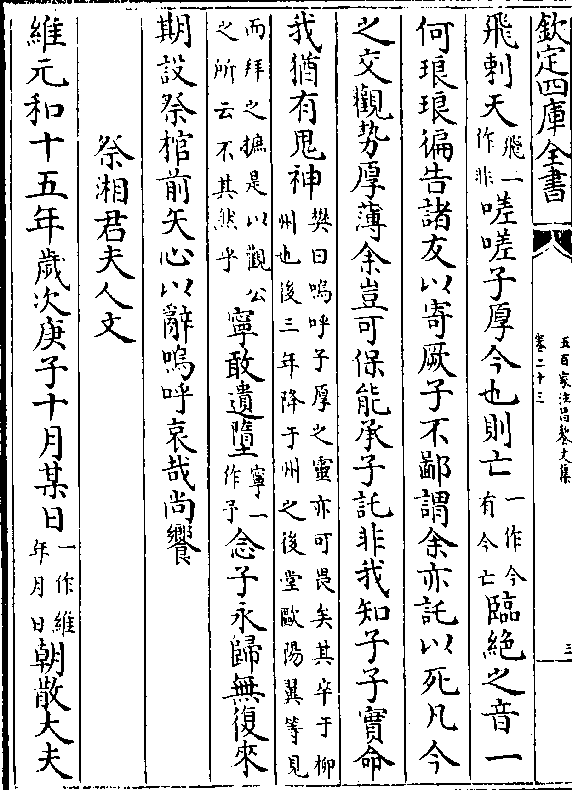 欽定四庫全書
五百家注昌黎文集
卷二十三
三
飛刺天飛一作非嗟嗟子厚今也則亡一作今有今亡臨絶之音一
何琅琅徧告諸友以寄厥子不鄙謂余亦託以死凡今
之交觀勢厚薄余豈可保能承子託非我知子子實命
我猶有鬼神樊曰嗚呼子厚之靈亦可畏矣其卒于柳州也後三年降于州之後堂歐陽翼等見
而拜之摭是以觀公之所云不其然乎寧敢遺墮寧一作予念子永歸無復來
期設祭棺前矢心以辭嗚呼哀哉尚饗
祭湘君夫人文
維元和十五年歲次庚子十月某日一作維年月日朝散大夫